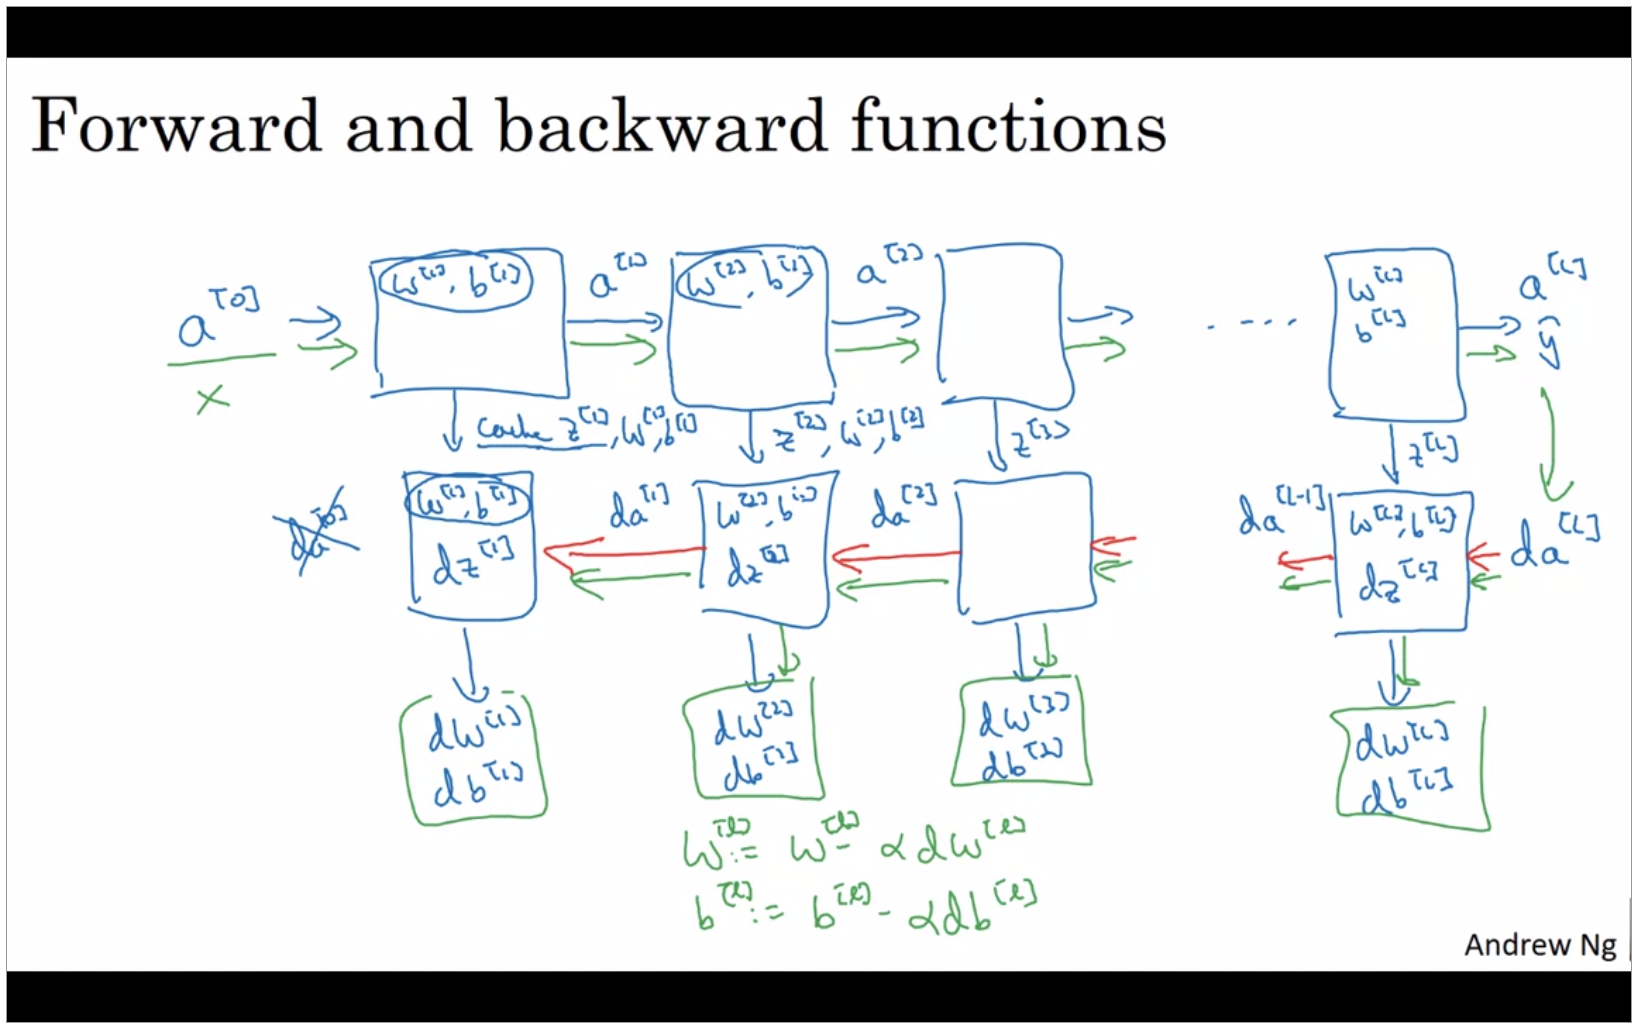 Forward and backward functions
a^[0] w^[1], b^[1] a^[1] w^[2], b^[2] a^[2] w^[L] b^[L] a^[L]
x .... ŷ
cache z^[1], w^[1], b^[1] z^[2], w^[2], b^[2] z^[3] z^[L]
da^[0] w^[1], b^[1] da^[1] w^[2], b^[2] da^[2] da^[L-1] w^[L], b^[L] da^[L]
dz^[1] dz^[2] dz^[L]
dw^[1] dw^[2] dw^[3] dw^[L]
db^[1] db^[2] db^[3] db^[L]
w^[l] := w^[l] - αdw^[l]
b^[l] := b^[l] - αdb^[l]
Andrew Ng